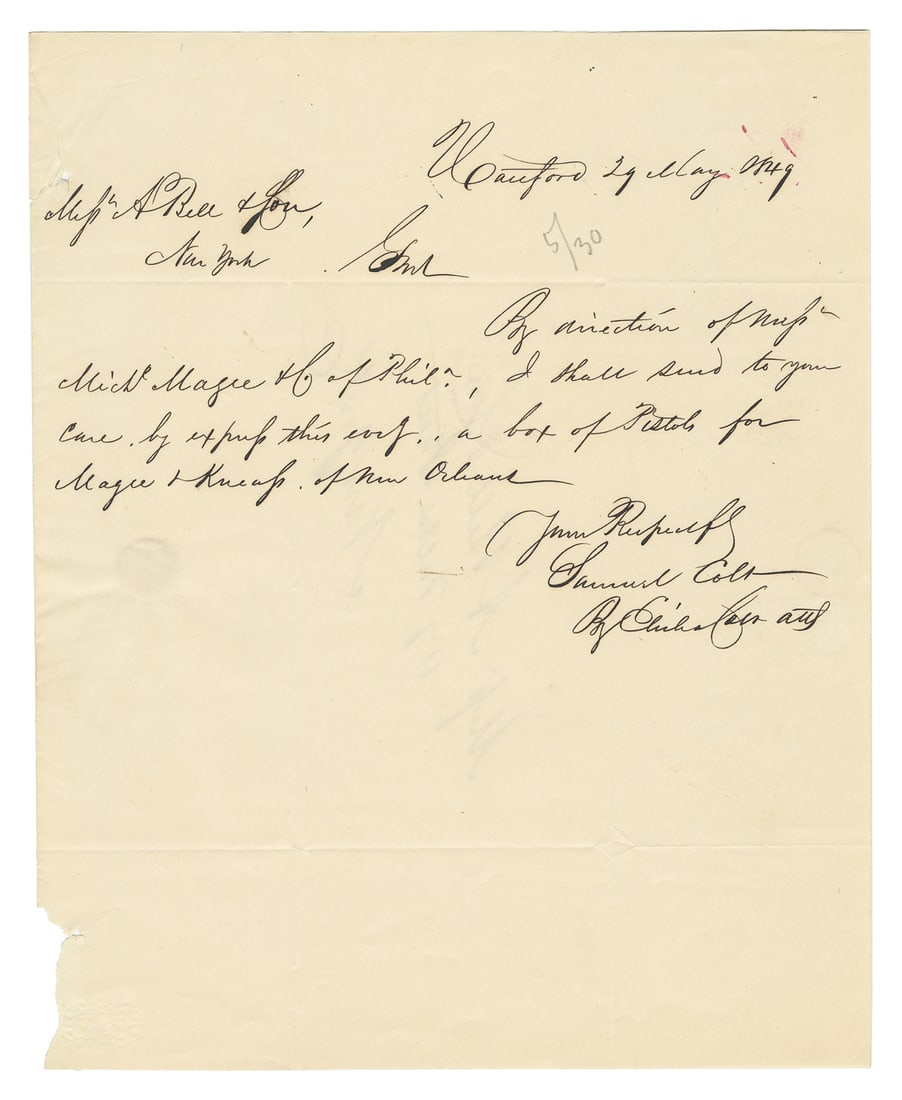 Hartford 29 May 1849
Messrs A Bell & Son,
New York Gent
5/30
By direction of Messrs
Michl Magee & Co of Phila, I shall send to your
care, by express this eveg, a box of Pistols for
Magee & Kneass, of New Orleans
Yours Respectfy
Samuel Colt
By Elisha Colt atty